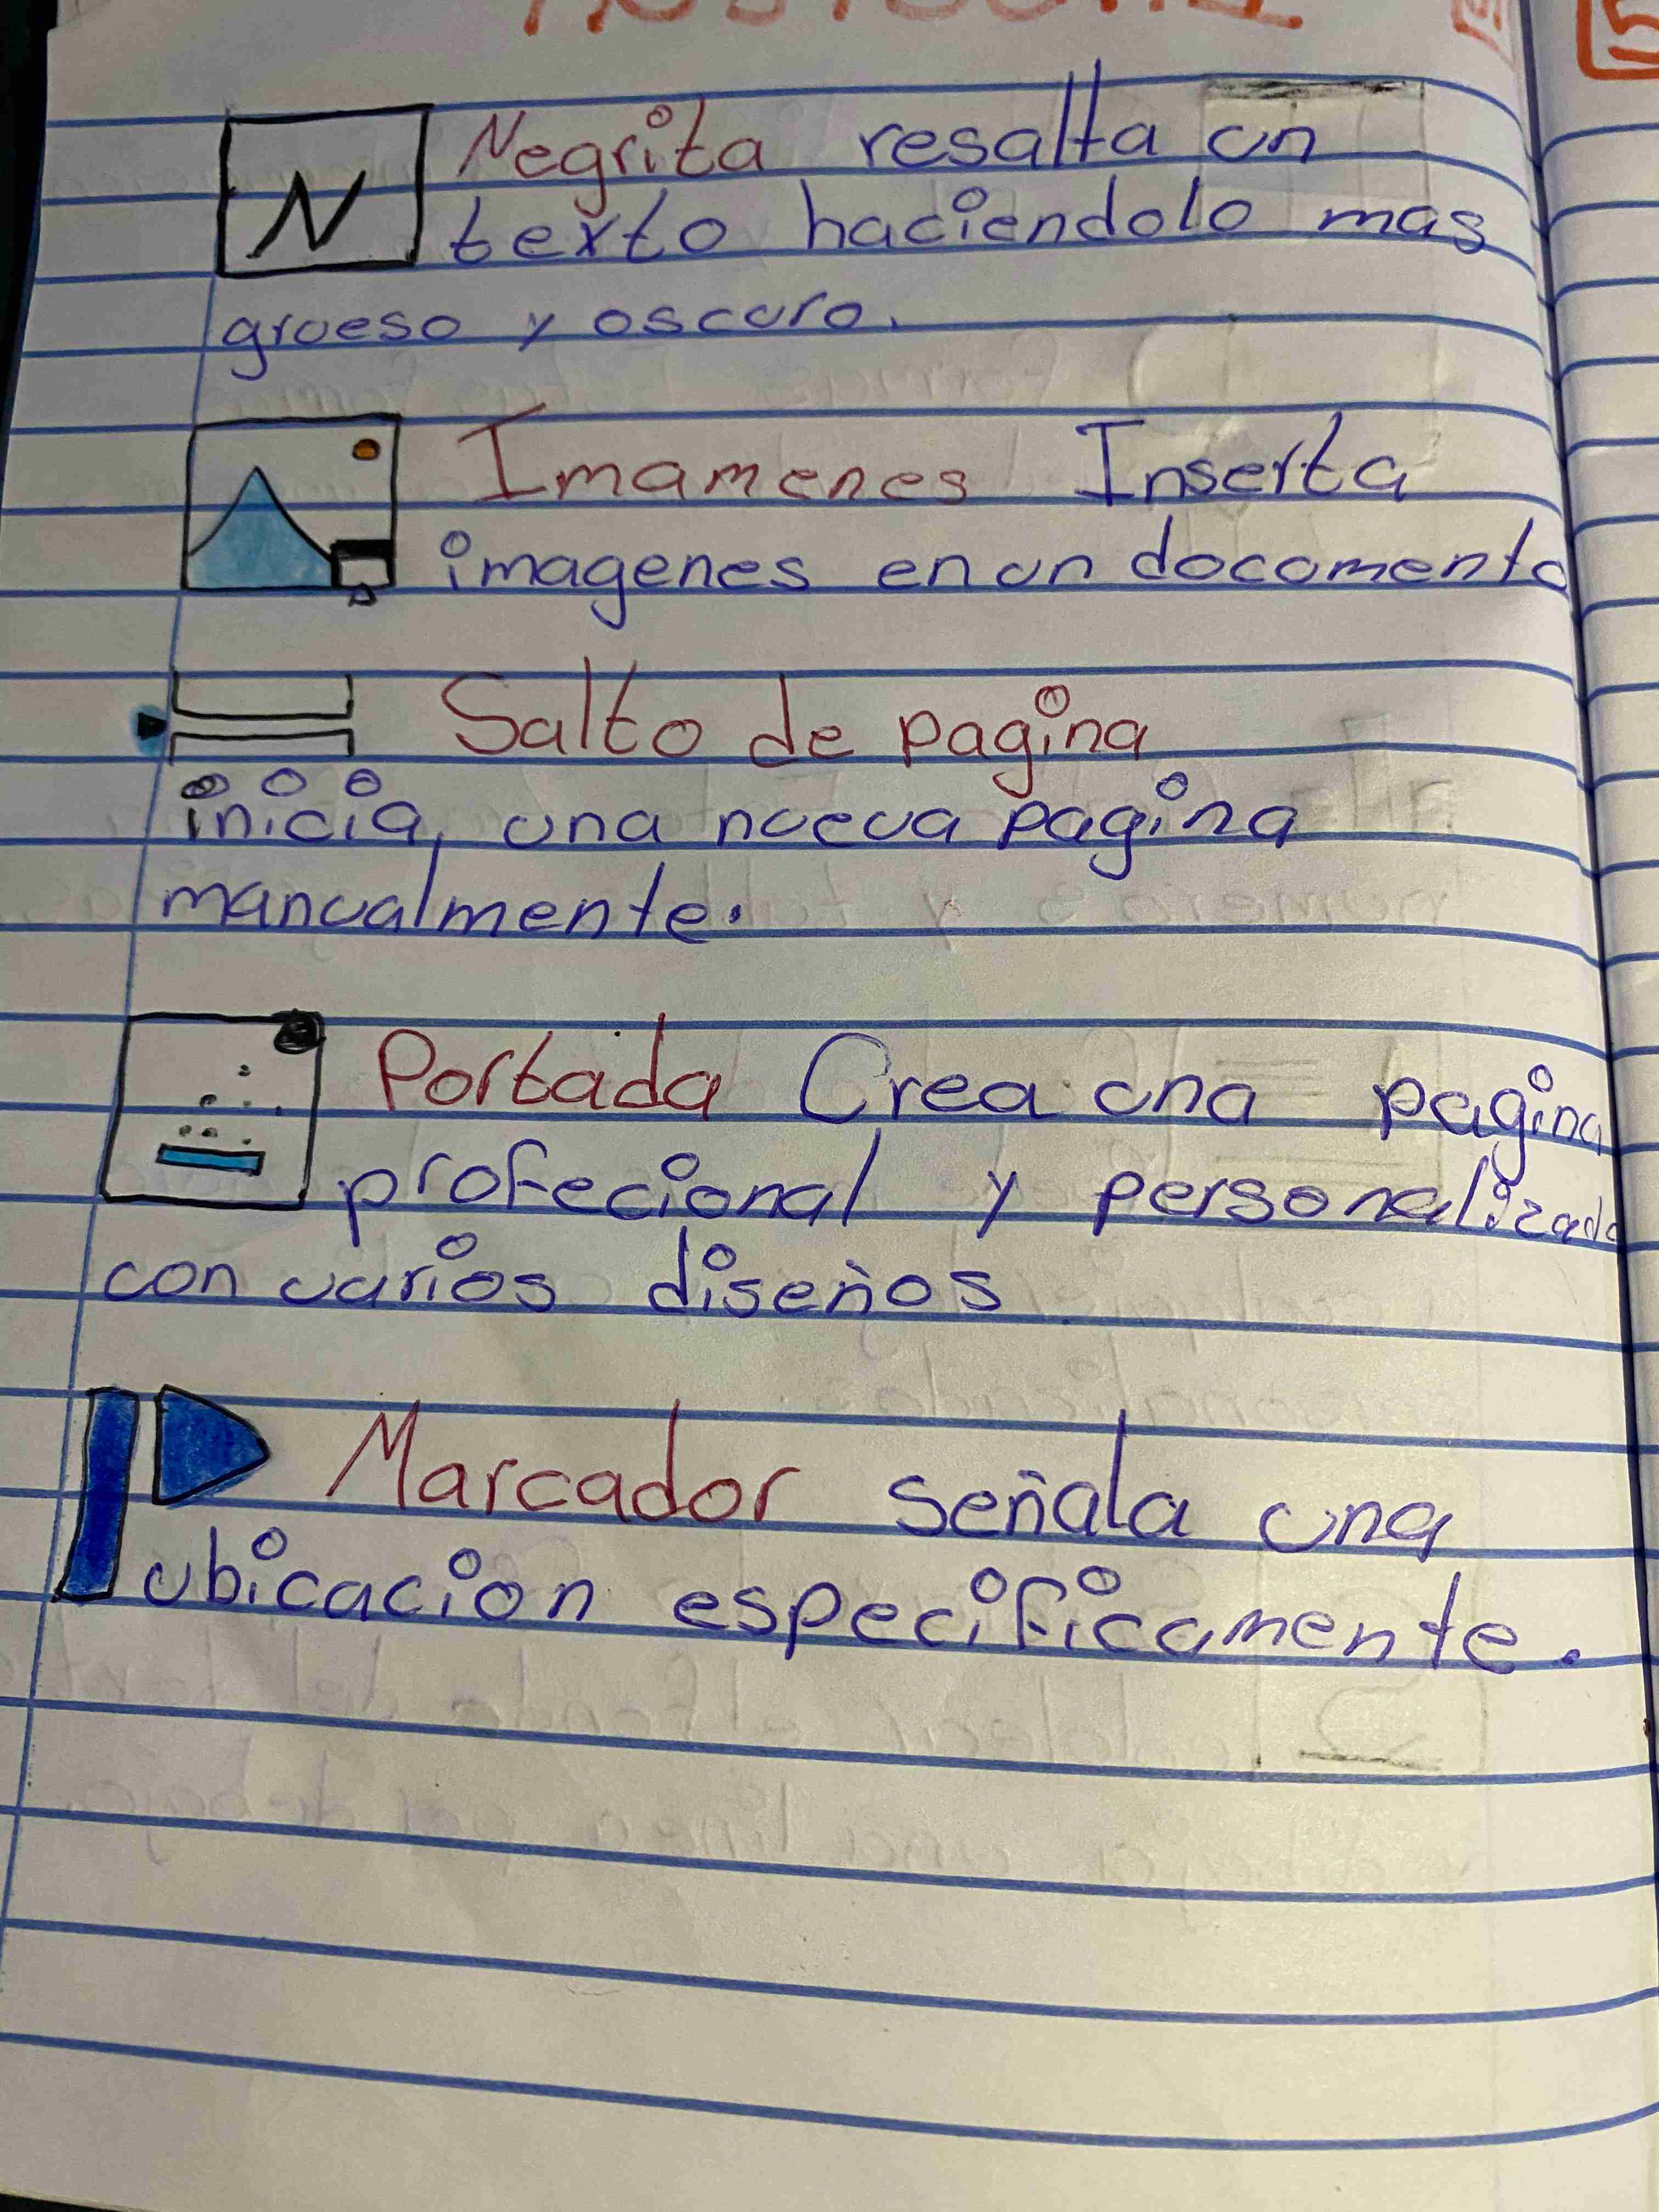 N Negrita resalta un
texto haciendolo mas
grueso y oscuro.
Imamenes Inserta
imagenes en un documento
Salto de pagina
inicia, una nueva pagina
manualmente.
Portada Crea una pagina
profecional y personalizada
con varios diseños
Marcador señala una
ubicacion especificamente.